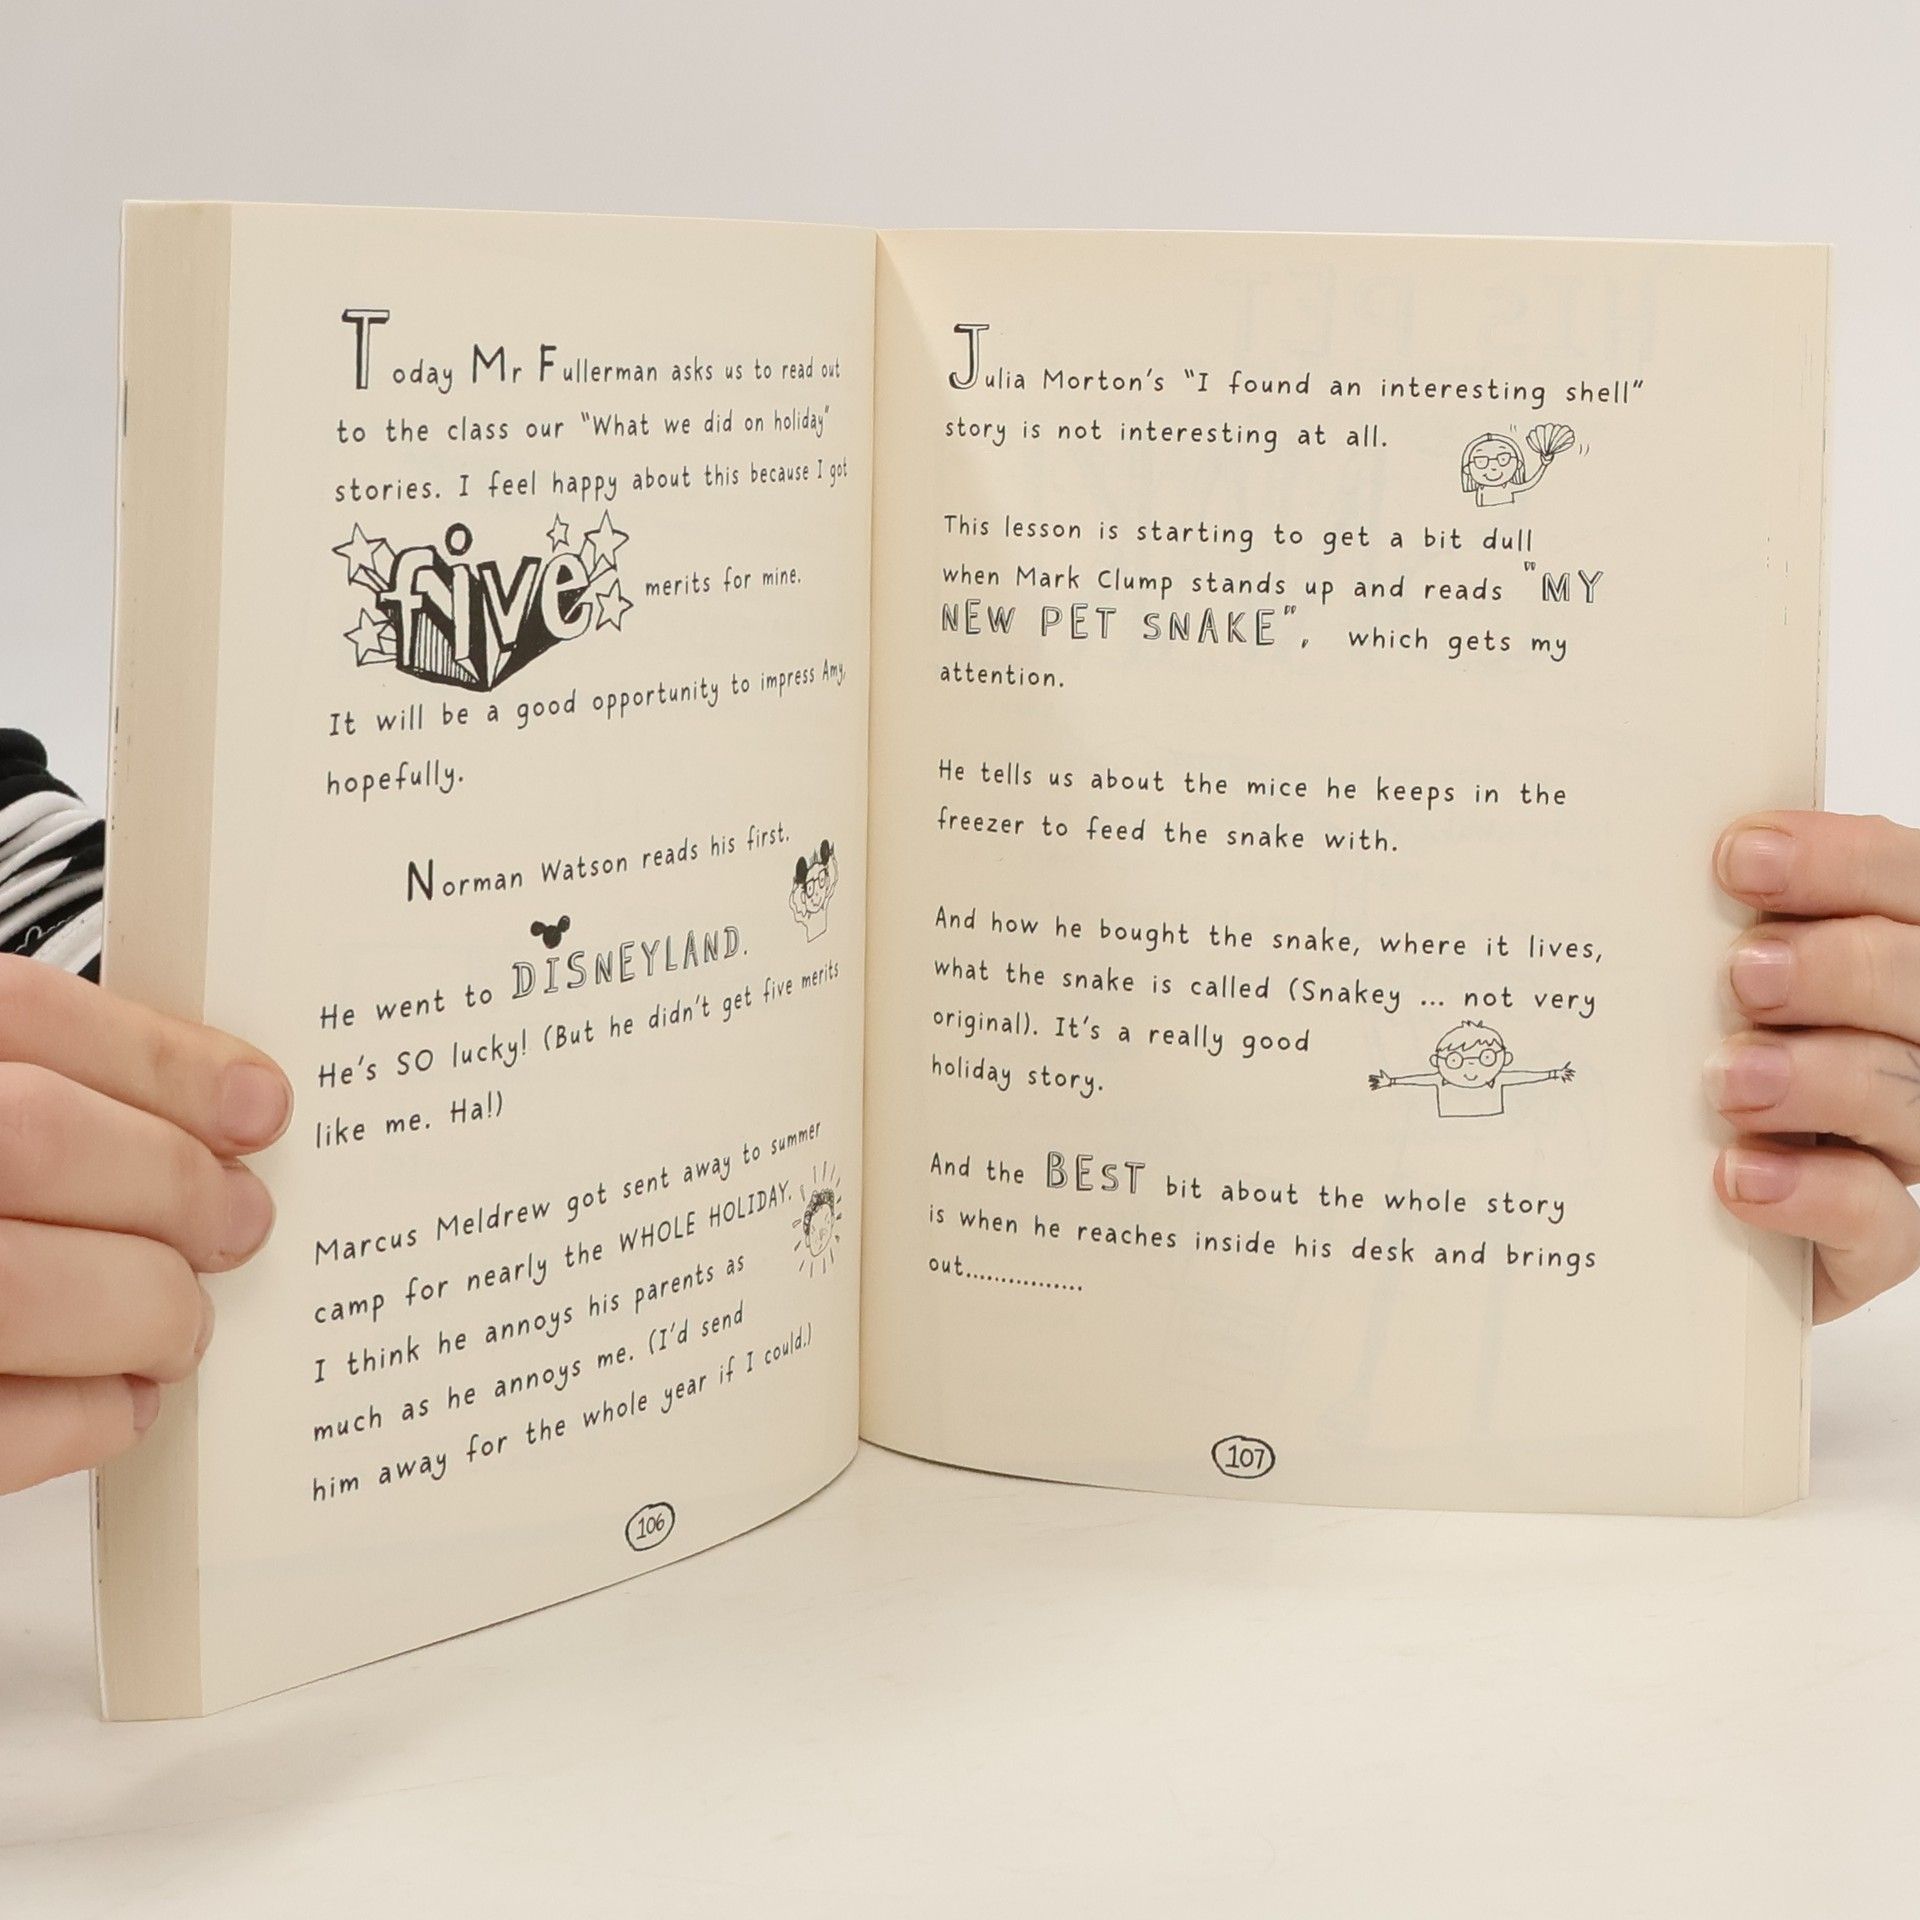 Today Mr Fullerman asks us to read out
to the class our "What we did on holiday"
stories. I feel happy about this because I got
five merits for mine.
It will be a good opportunity to impress Amy,
hopefully.
Norman Watson reads his first.
He went to DISNEYLAND.
He's SO lucky! (But he didn't get five merits
like me. Ha!)
Marcus Meldrew got sent away to summer
camp for nearly the WHOLE HOLIDAY.
I think he annoys his parents as
much as he annoys me. (I'd send
him away for the whole year if I could.)
106
Julia Morton's "I found an interesting shell"
story is not interesting at all.
This lesson is starting to get a bit dull
when Mark Clump stands up and reads "MY
NEW PET SNAKE", which gets my
attention.
He tells us about the mice he keeps in the
freezer to feed the snake with.
And how he bought the snake, where it lives,
what the snake is called (Snakey ... not very
original). It's a really good
holiday story.
And the BEST bit about the whole story
is when he reaches inside his desk and brings
out................
107